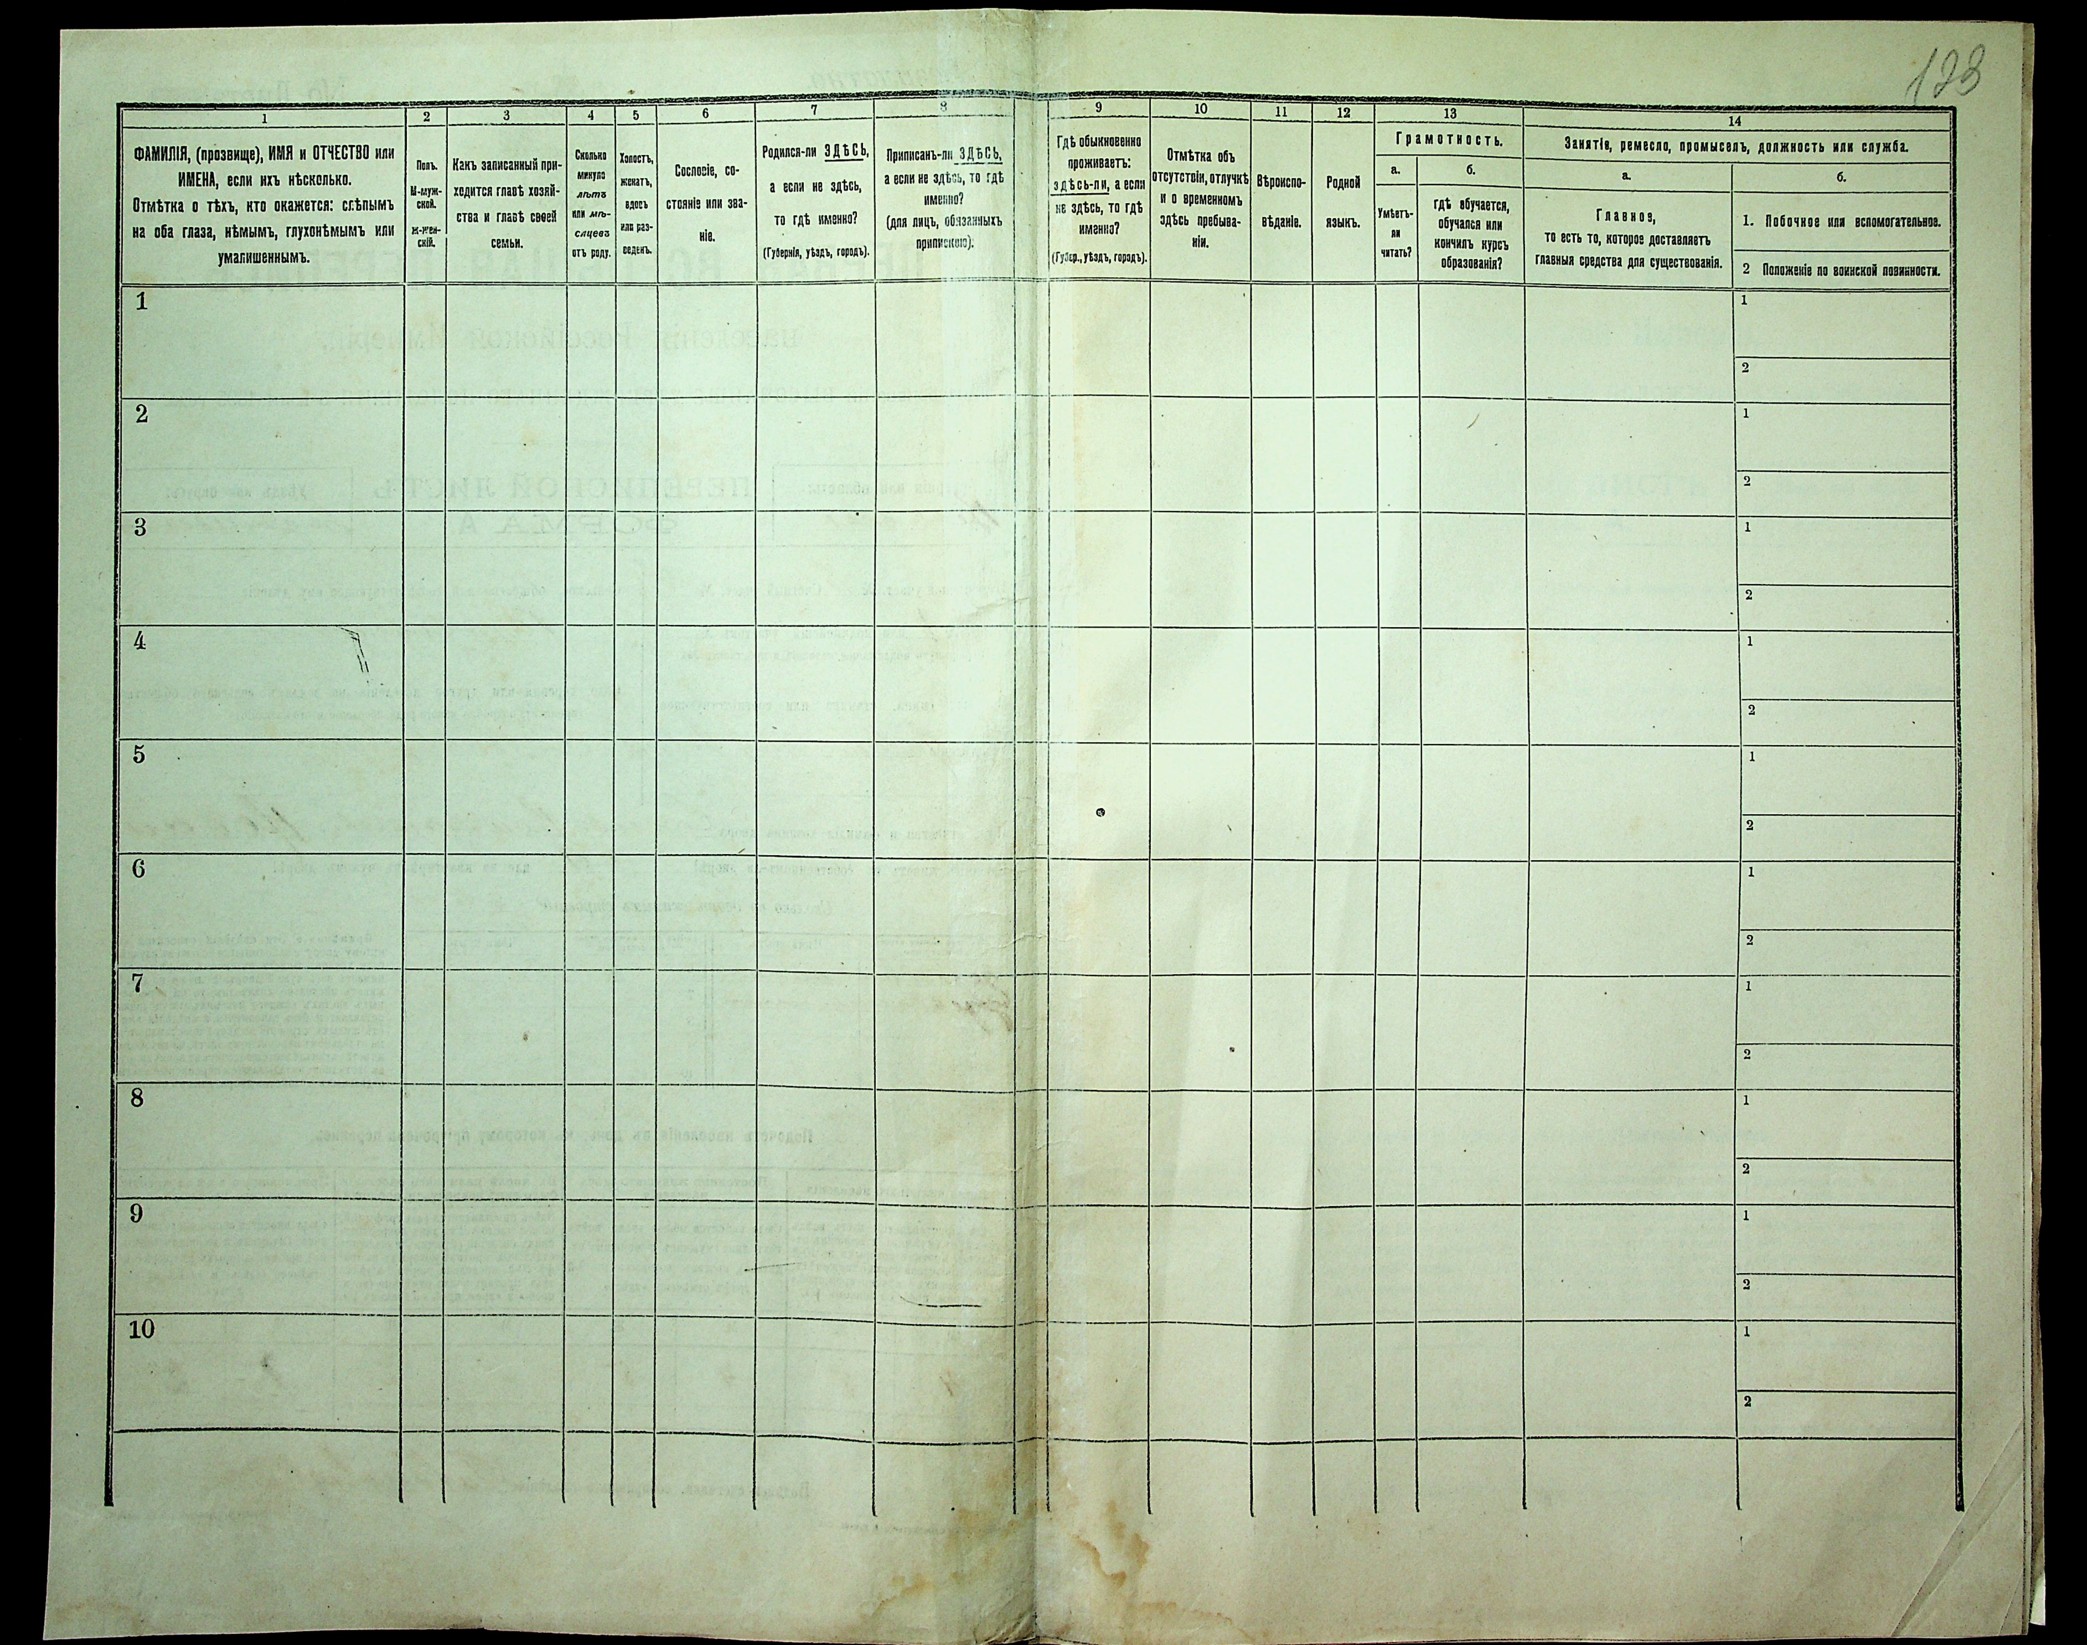 123
1
2
3
4
5
6
7
8
9
10
11
12
13
14
ФАМИЛІЯ, (прозвище), ИМЯ и ОТЧЕСТВО или
ИМЕНА, если ихъ нѣсколько.
Отмѣтка о тѣхъ, кто окажется: слѣпымъ
на оба глаза, нѣмымъ, глухонѣмымъ или
умалишеннымъ.
Полъ.
М-муж-
ской.
Ж-жен-
скій.
Какъ записанный при-
ходится главѣ хозяй-
ства и главѣ своей
семьи.
Сколько
минуло
лѣтъ
или мѣ-
сяцевъ
отъ роду.
Холостъ,
женатъ,
вдовъ
или раз-
веденъ.
Сословіе, со-
стояніе или зва-
ніе.
Родился-ли ЗДѢСЬ,
а если не здѣсь,
то гдѣ именно?
(Губернія, уѣздъ, городъ).
Приписанъ-ли ЗДѢСЬ,
а если не здѣсь, то гдѣ
именно?
(для лицъ, обязанныхъ
припискою).
Гдѣ обыкновенно
проживаетъ:
здѣсь-ли, а если
не здѣсь, то гдѣ
именно?
(Губер., уѣздъ, городъ).
Отмѣтка объ
отсутствіи, отлучкѣ
и о временномъ
здѣсь пребыва-
ніи.
Вѣроиспо-
вѣданіе.
Родной
языкъ.
Грамотность.
а.
Умѣетъ-
ли
читать?
б.
гдѣ обучается,
обучался или
кончилъ курсъ
образованія?
Занятіе, ремесло, промыселъ, должность или служба.
а.
Главное,
то есть то, которое доставляетъ
главныя средства для существованія.
б.
1. Побочное или вспомогательное.
2 Положеніе по воинской повинности.
1
1
2
2
1
2
3
1
2
4
1
2
5
1
2
6
1
2
7
1
2
8
1
2
9
1
2
10
1
2